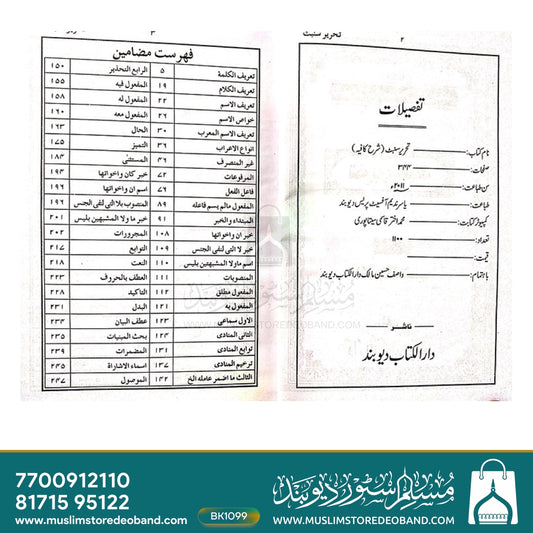 تحریر سنبٹ
۲
تفصیلات
نام کتاب: تحریر سنبٹ (شرح کافیہ)
صفحات: ۳۴۴
سن طباعت: ۲۰۱۱ء
طباعت: یاسر ندیم آفسیٹ پریس دیوبند
کمپیوٹر کتابت: محمد اختر قاسمی سیتاپوری
تعداد: ۱۱۰۰
قیمت:
باہتمام: واصف حسین مالک دارالکتاب دیوبند
ناشر
دارالکتاب دیوبند
۳
فہرست مضامین
تعریف الکلمة ۵ الرابع التحذیر ۱۵۰
تعریف الکلام ۱۹ المفعول فیه ۱۵۵
تعریف الاسم ۲۲ المفعول له ۱۵۸
خواص الاسم ۲۶ المفعول معه ۱۶۰
تعریف الاسم المعرب ۳۰ الحال ۱۶۳
انواع الاعراب ۳۶ التمیز ۱۷۵
غیر المنصرف ۴۶ المستثنی ۱۸۴
المرفوعات ۷۲ خبر کان واخواتها ۱۹۴
فاعل الفعل ۷۶ اسم ان واخواتها ۱۹۶
المفعول مالم یسم فاعله ۸۹ المنصوب بلا التی لنفی الجنس ۱۹۶
المبتداء والخبر ۹۱ خبر ما ولا المشبهتین بلیس ۲۰۱
خبر ان واخواتها ۱۰۸ المجرورات ۲۰۲
خبر لا التی لنفی الجنس ۱۰۹ التوابع ۲۱۷
اسم ما ولا المشبهتین بلیس ۱۱۰ النعت ۲۱۸
المنصوبات ۱۱۱ العطف بالحروف ۲۲۳
المفعول مطلق ۱۱۲ التاکید ۲۲۸
المفعول به ۱۲۱ البدل ۲۳۱
الاول سماعی ۱۲۳ عطف البیان ۲۳۴
الثانی المنادی ۱۲۴ بحث المبنیات ۲۳۵
توابع المنادی ۱۳۱ المضمرات ۲۳۹
ترخیم المنادی ۱۳۷ اسماء الاشارة ۲۴۵
الثالث ما اضمر عامله الخ ۱۴۲ الموصول ۲۴۷
مسلم سٹور دیوبند
WWW.MUSLIMSTOREDEOBAND.COM
7700912110
81715 95122
www.muslimstoredeoband.com
BK1099
مسلم سٹور دیوبند
WWW.MUSLIMSTOREDEOBAND.COM